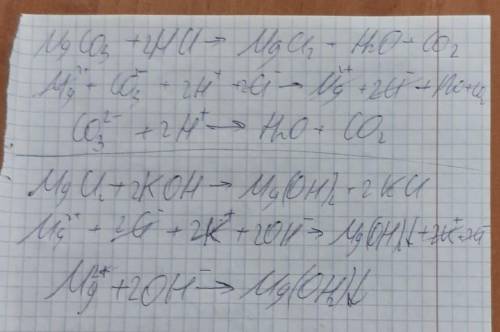 MgCO₃ + 2HCl → MgCl₂ + H₂O + CO₂
Mg²⁺ + CO₃²⁻ + 2H⁺ + 2Cl⁻ → Mg²⁺ + 2Cl⁻ + H₂O + CO₂
CO₃²⁻ + 2H⁺ → H₂O + CO₂
MgCl₂ + 2KOH → Mg(OH)₂ + 2KCl
Mg²⁺ + 2Cl⁻ + 2K⁺ + 2OH⁻ → Mg(OH)₂↓ + 2K⁺ + 2Cl⁻
Mg²⁺ + 2OH⁻ → Mg(OH)₂↓